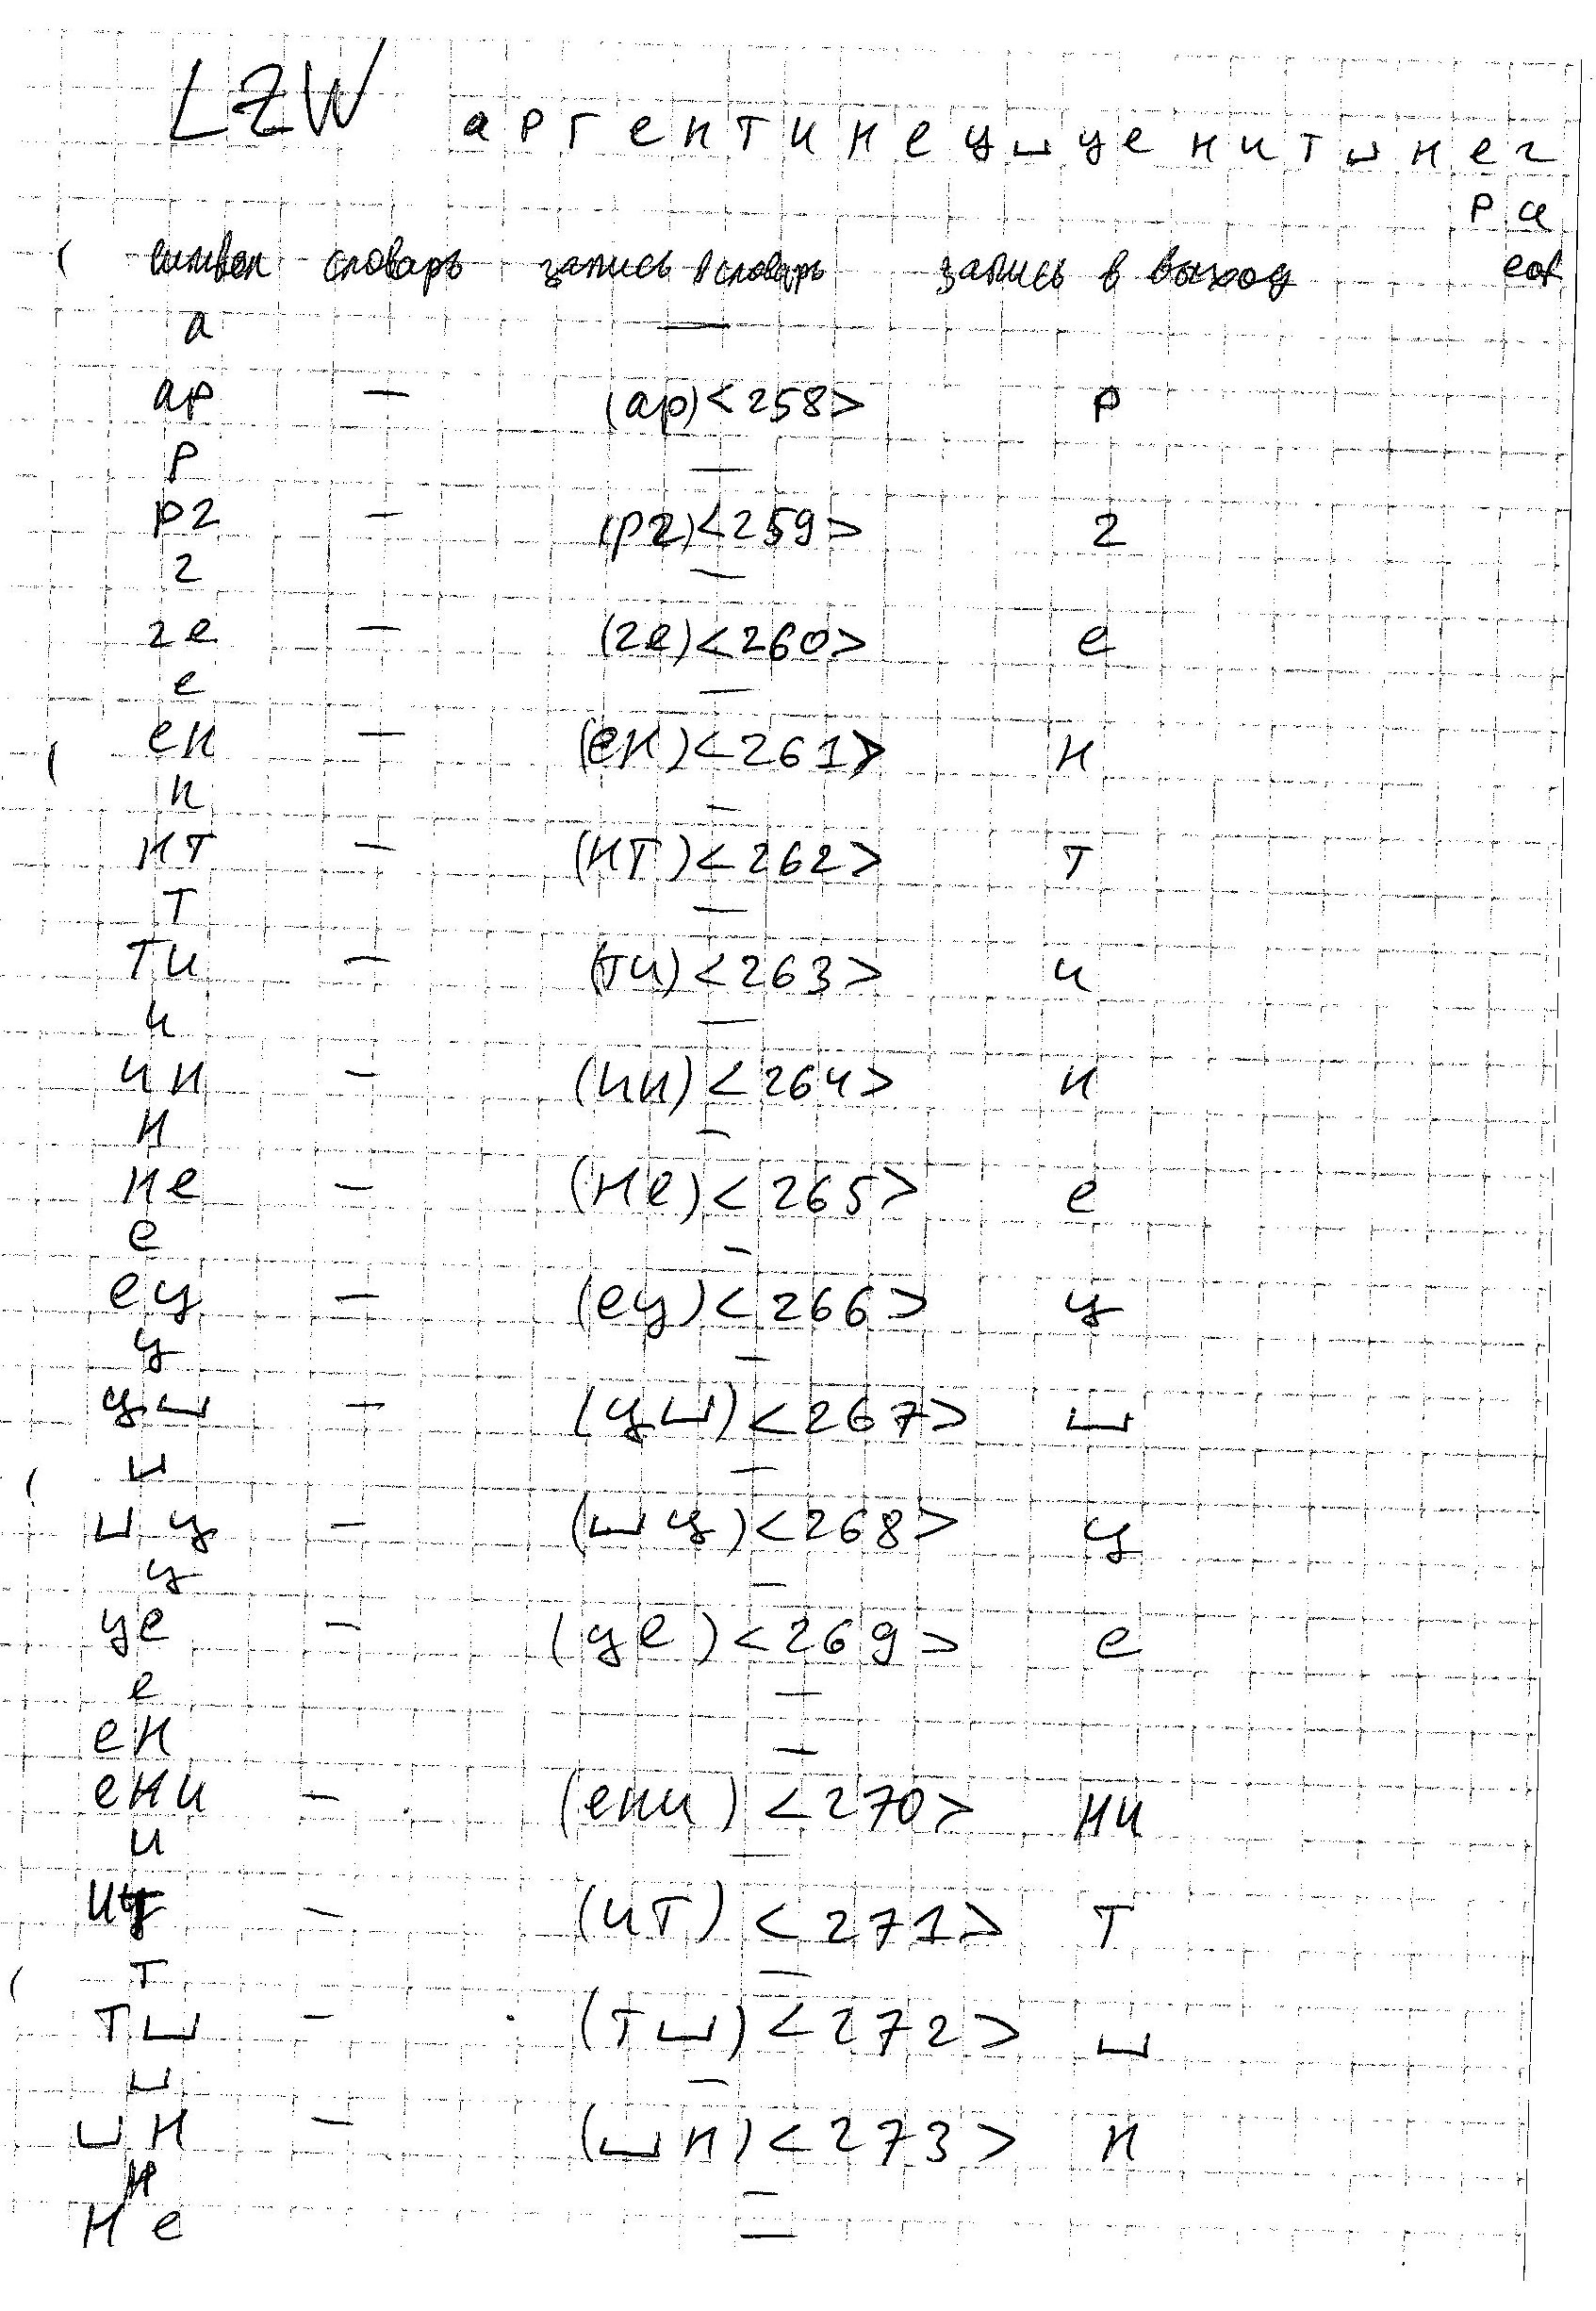 LZW аргентинец␣ценит␣нег
ра
символ словарь запись в словарь запись в выход eof
а —
ар — (ар)<258> р
р —
рг — (рг)<259> г
г —
ге — (ге)<260> е
е —
ен — (ен)<261> н
н —
нт — (нт)<262> т
т —
ти — (ти)<263> и
и —
ин — (ин)<264> н
н —
не — (не)<265> е
е —
ец — (ец)<266> ц
ц —
ц␣ — (ц␣)<267> ␣
␣ —
␣ц — (␣ц)<268> ц
ц —
це — (це)<269> е
е —
ен —
ени — (ени)<270> ни
и —
ит — (ит)<271> т
т —
т␣ — (т␣)<272> ␣
␣ —
␣н — (␣н)<273> н
н —
не —